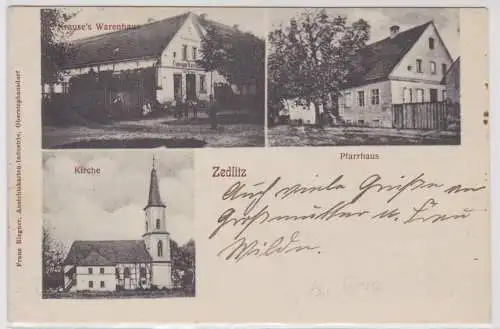 Krause's Warenhaus
Pfarrhaus
Kirche
Zedlitz
Auch viele Grüße an
Großmutter u. Frau
Wilde.
Franz Riegner, Ansichtskarten-Industrie, Oberstephansdorf